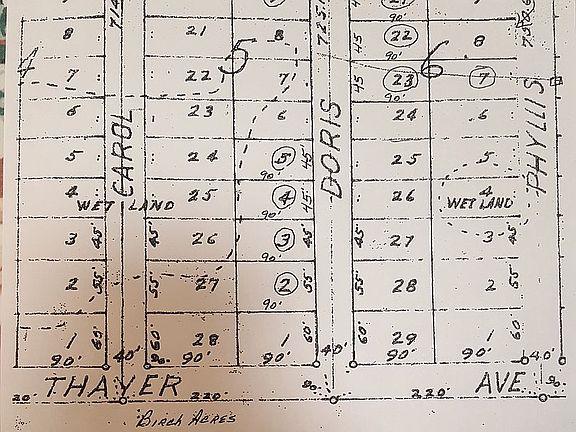 90'
8 21 8 45 22 8
714 725.
90'
4 7 22 5 7 45 23 6 7
90'
6 23 6 24 6
CAROL DORIS PHYLLIS
5 24 5 45' 25 5
90'
4 25 4 45' 26 4
WET LAND WET LAND
90'
3 45' 45' 26 3 45' 45' 27 3
2 55' 55' 27 2 55' 55' 28 2 55'
90'
1 60' 60' 28 1 60' 60' 29 1 60'
90' 40' 90' 90' 40' 90' 90' 40'
THAYER AVE
20' 220' 220'
Birch Acres